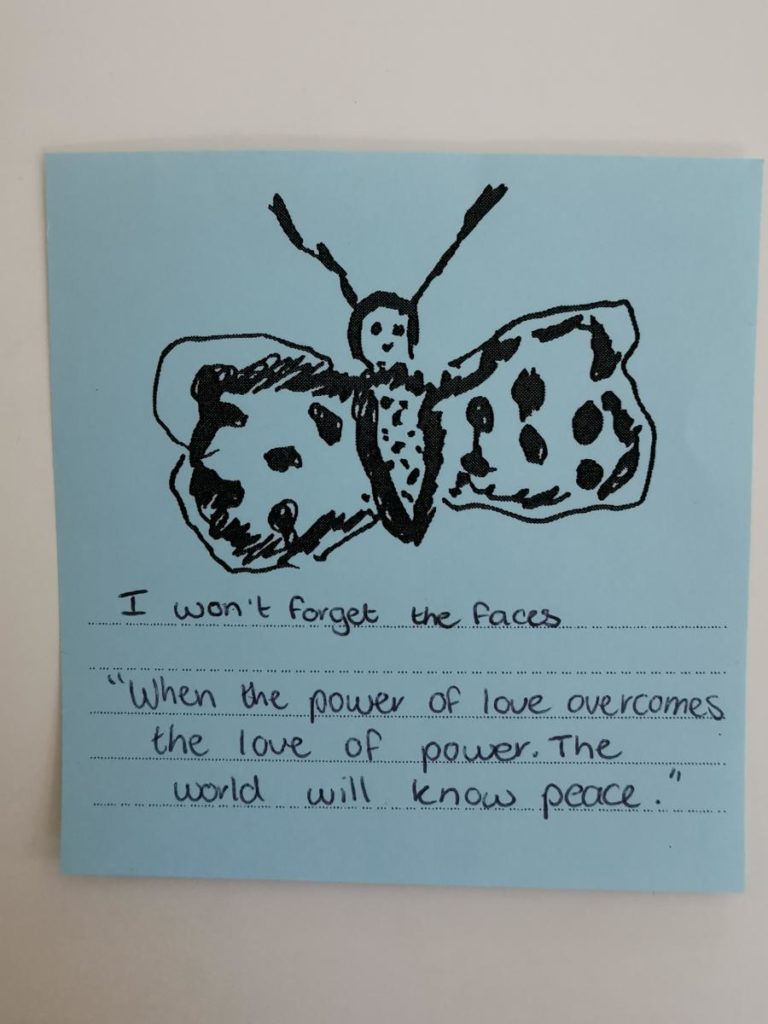 I won't forget the faces
"When the power of love overcomes
the love of power. The
world will know peace."